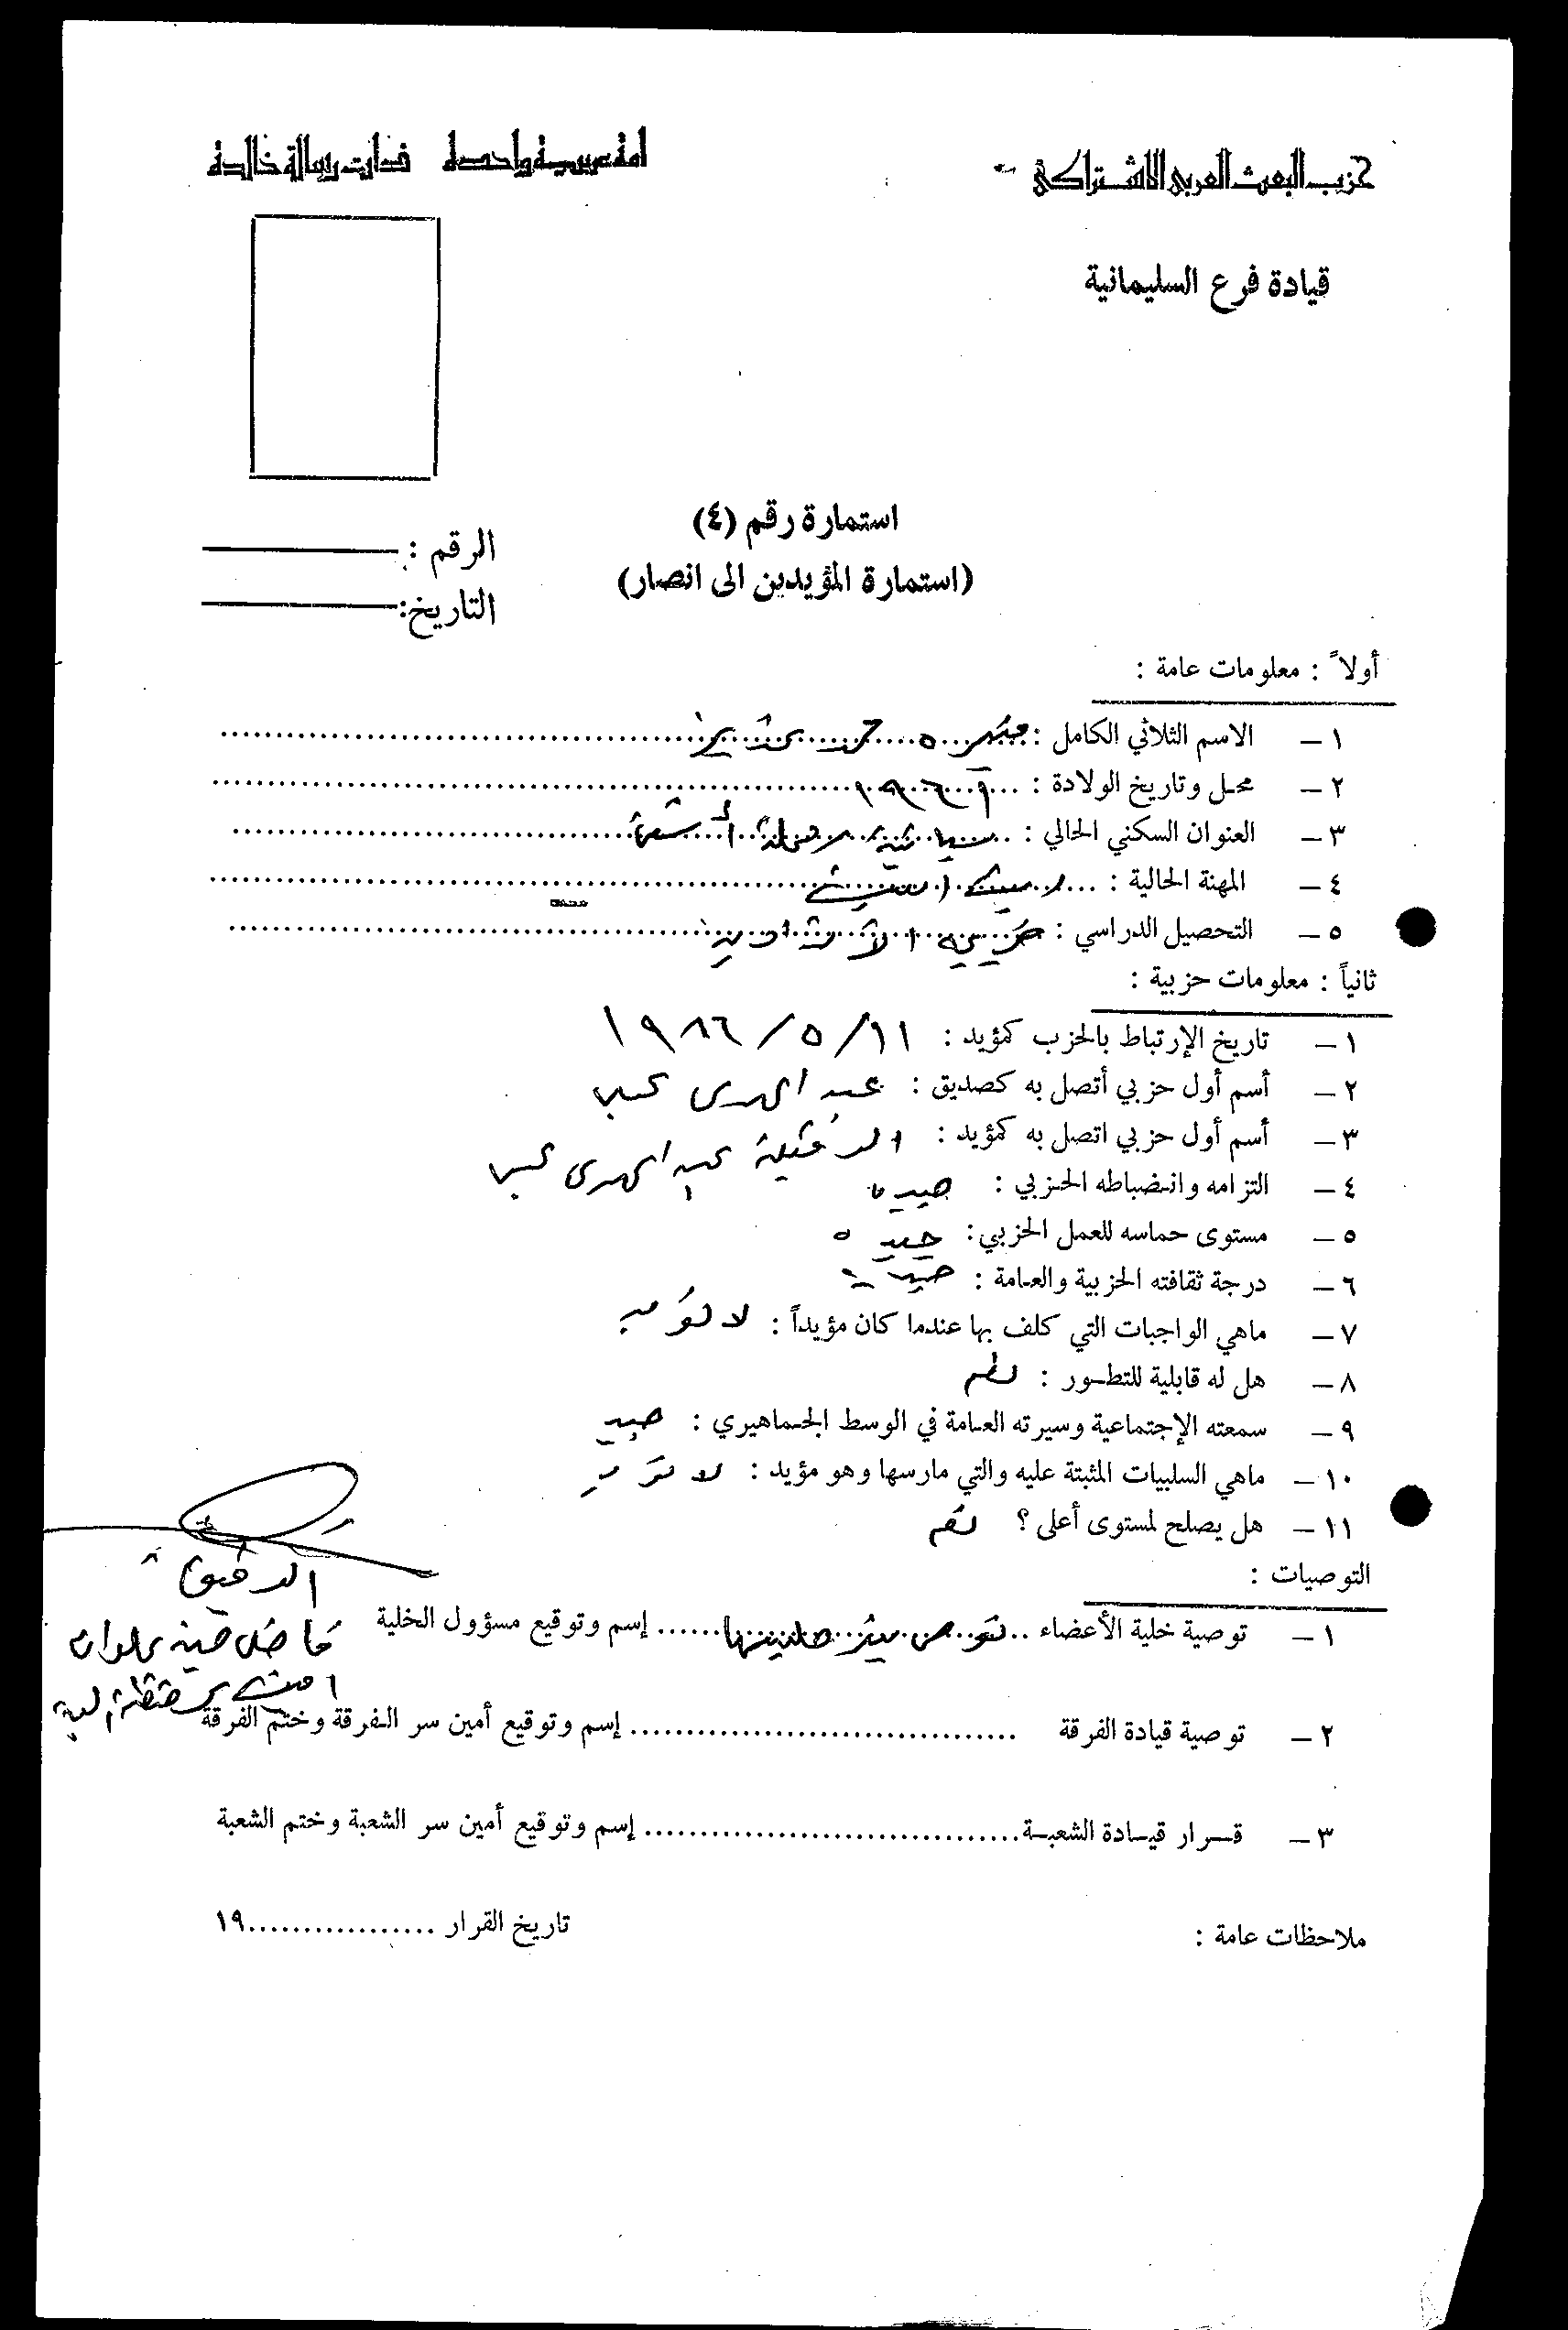 حزب البعث العربي الاشتراكي
امة عربية واحدة ذات رسالة خالدة
قيادة فرع السليمانية
استمارة رقم (٤)
(استمارة المؤيدين الى انصار)
الرقم :
التاريخ:
أولاً : معلومات عامة :
١ – الاسم الثلاثي الكامل :
٢ – محل وتاريخ الولادة : ١٩٦٩
٣ – العنوان السكني الحالي :
٤ – المهنة الحالية :
٥ – التحصيل الدراسي :
ثانياً : معلومات حزبية :
١ – تاريخ الإرتباط بالحزب كمؤيد : ١١/٥/١٩٨٦
٢ – أسم أول حزبي أتصل به كصديق : عبد المهدي
٣ – أسم أول حزبي اتصل به كمؤيد : الرفيقة عبد المهدي
٤ – التزامه وانضباطه الحزبي : جيدة
٥ – مستوى حماسه للعمل الحزبي: جيدة
٦ – درجة ثقافته الحزبية والعامة : جيدة
٧ – ماهي الواجبات التي كلف بها عندما كان مؤيداً : لا توجد
٨ – هل له قابلية للتطور : نعم
٩ – سمعته الإجتماعية وسيرته العامة في الوسط الجماهيري : جيد
١٠ – ماهي السلبيات المثبتة عليه والتي مارسها وهو مؤيد : لا توجد
١١ – هل يصلح لمستوى أعلى ؟ نعم
التوصيات :
١ – توصية خلية الأعضاء إسم وتوقيع مسؤول الخلية
الرفيق
فاضل
٢ – توصية قيادة الفرقة إسم وتوقيع أمين سر الفرقة وختم الفرقة
٣ – قرار قيادة الشعبة إسم وتوقيع أمين سر الشعبة وختم الشعبة
تاريخ القرار ١٩
ملاحظات عامة :